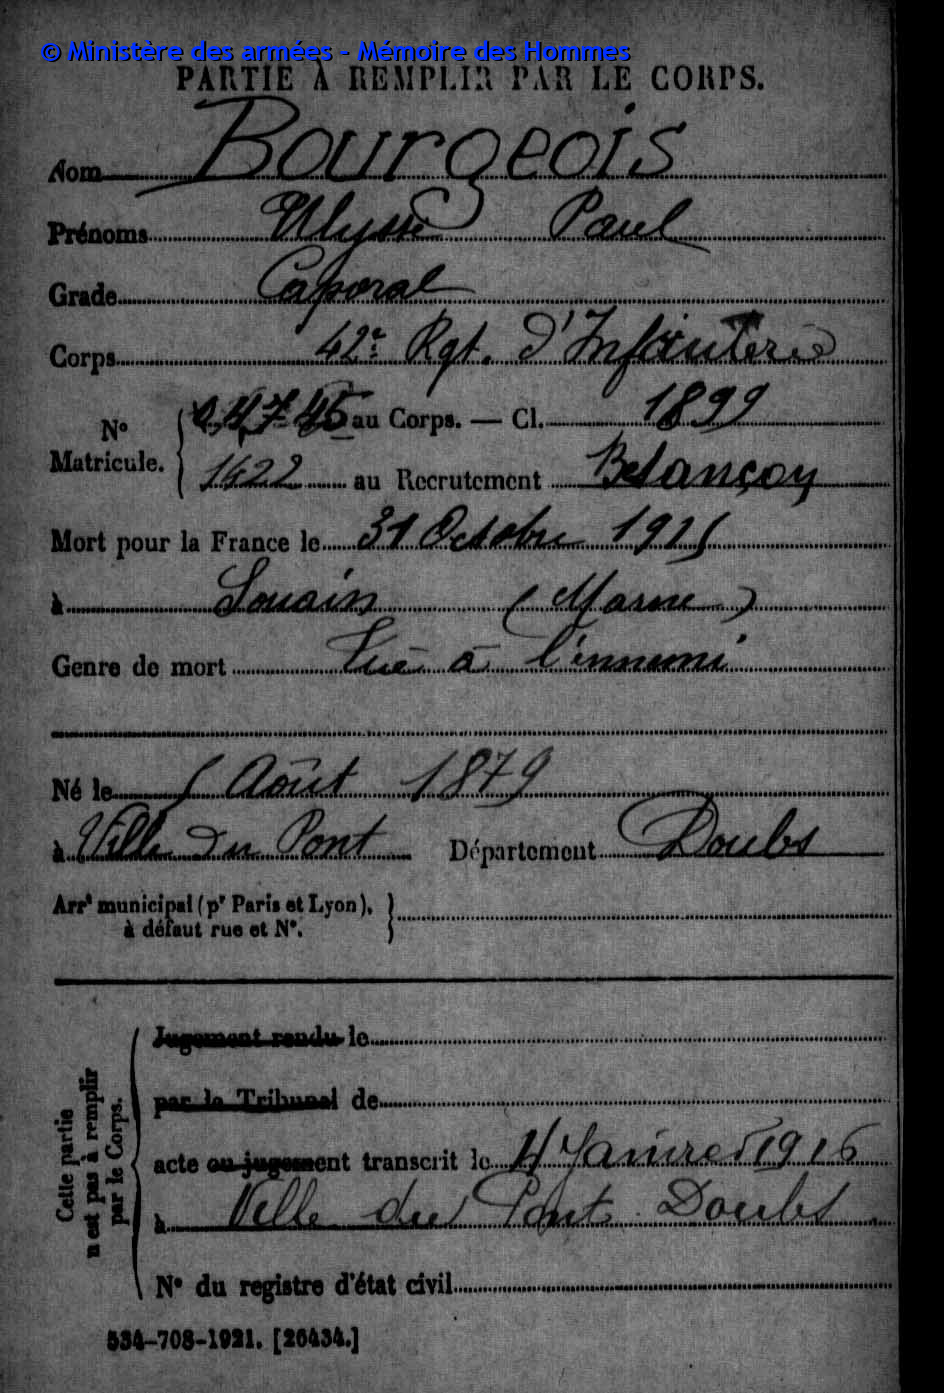 © Ministère des armées - Mémoire des Hommes
PARTIE À REMPLIR PAR LE CORPS.
Nom Bourgeois
Prénoms Ulysse Paul
Grade Caporal
Corps 42e Rgt. d'Infanterie
N° Matricule. { au Corps. — Cl. 1899
1422 au Recrutement Besançon
Mort pour la France le 31 Octobre 1915
à Souain (Marne)
Genre de mort Tué à l'ennemi
Né le 5 Août 1879
à Ville du Pont Département Doubs
Arrt municipal (pr Paris et Lyon), }
à défaut rue et N°.
Cette partie
n'est pas à remplir
par le Corps.
Jugement rendu le
par le Tribunal de
acte ou jugement transcrit le 4 Janvier 1916
à Ville du Pont Doubs
N° du registre d'état civil
534-708-1921. [26434.]